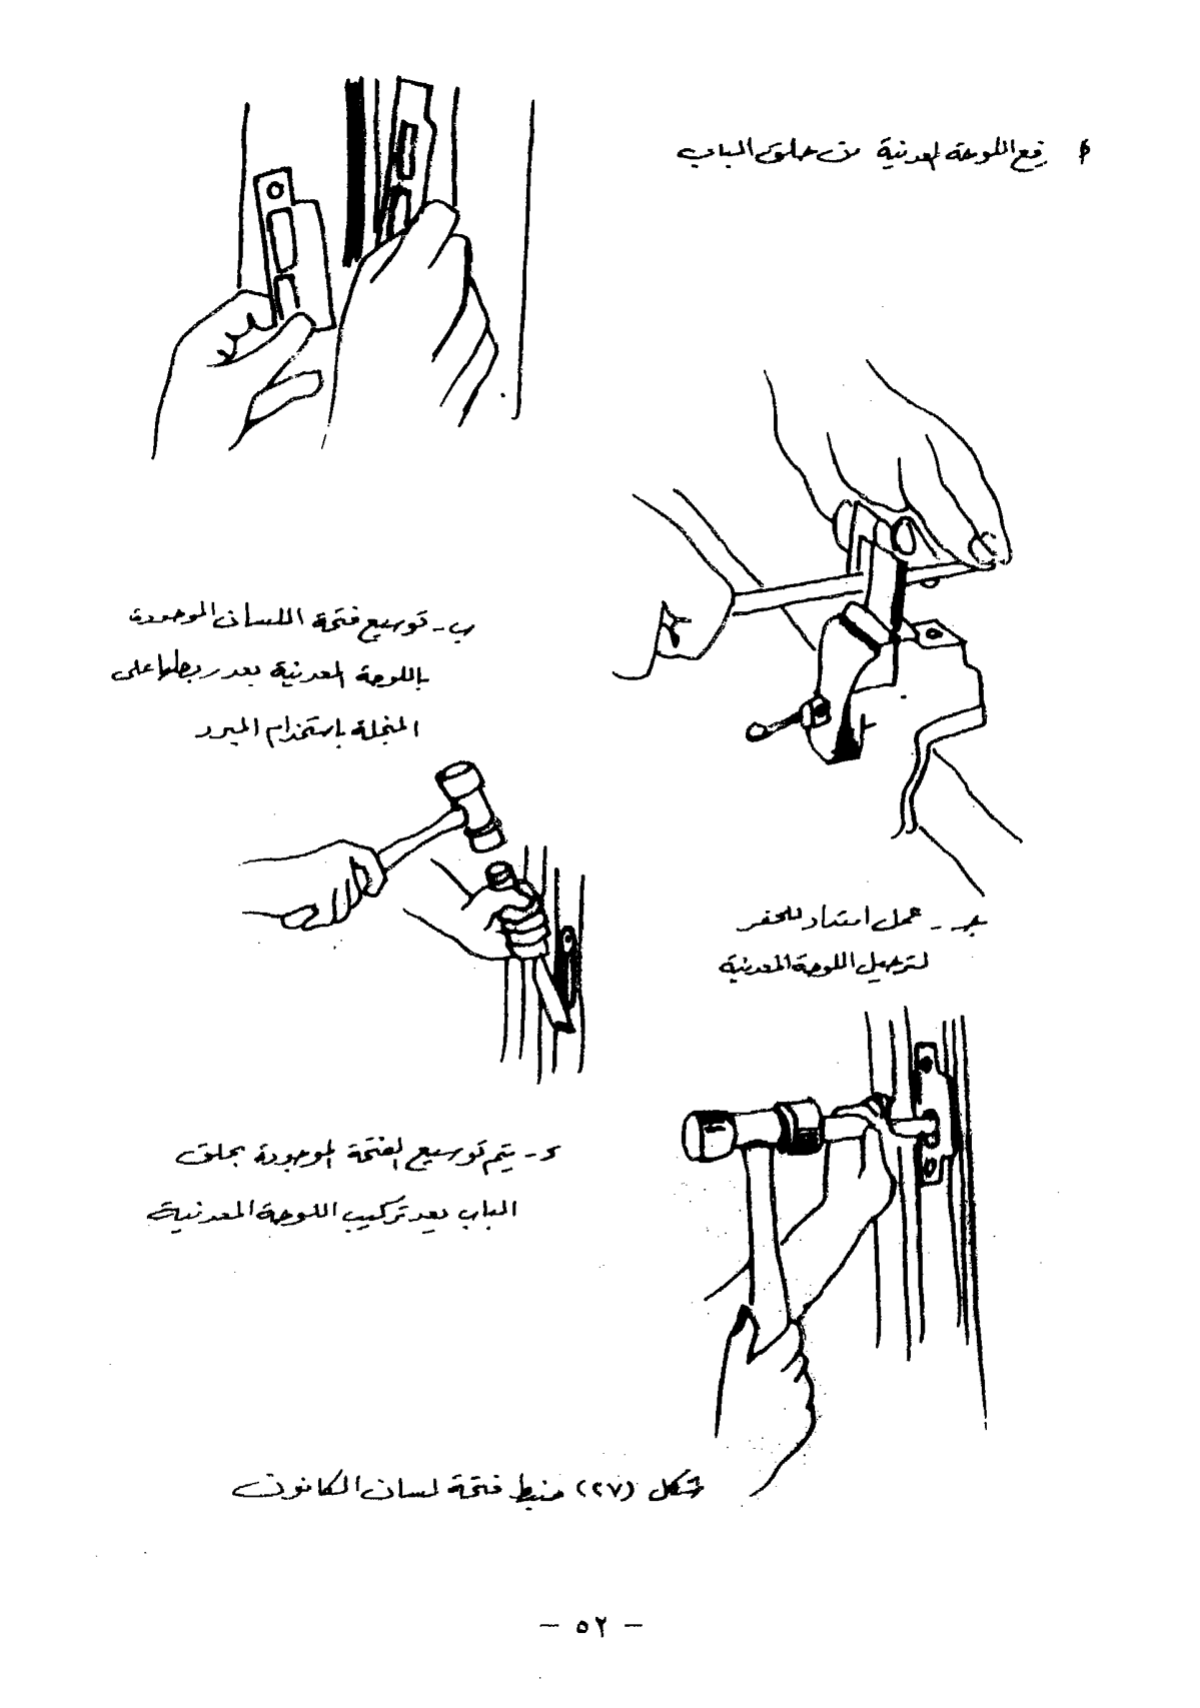 أ رفع اللوحة المعدنية من حلق الباب
ب - توسيع فتحة اللسان الموجودة
باللوحة المعدنية بعد ربطها على
المنجلة باستخدام المبرد
جـ - عمل امتداد للحفر
لترحيل اللوحة المعدنية
د - يتم توسيع الفتحة الموجودة بحلق
الباب بعد تركيب اللوحة المعدنية
شكل (٢٧) ضبط فتحة لسان الكالون
- ٥٢ -